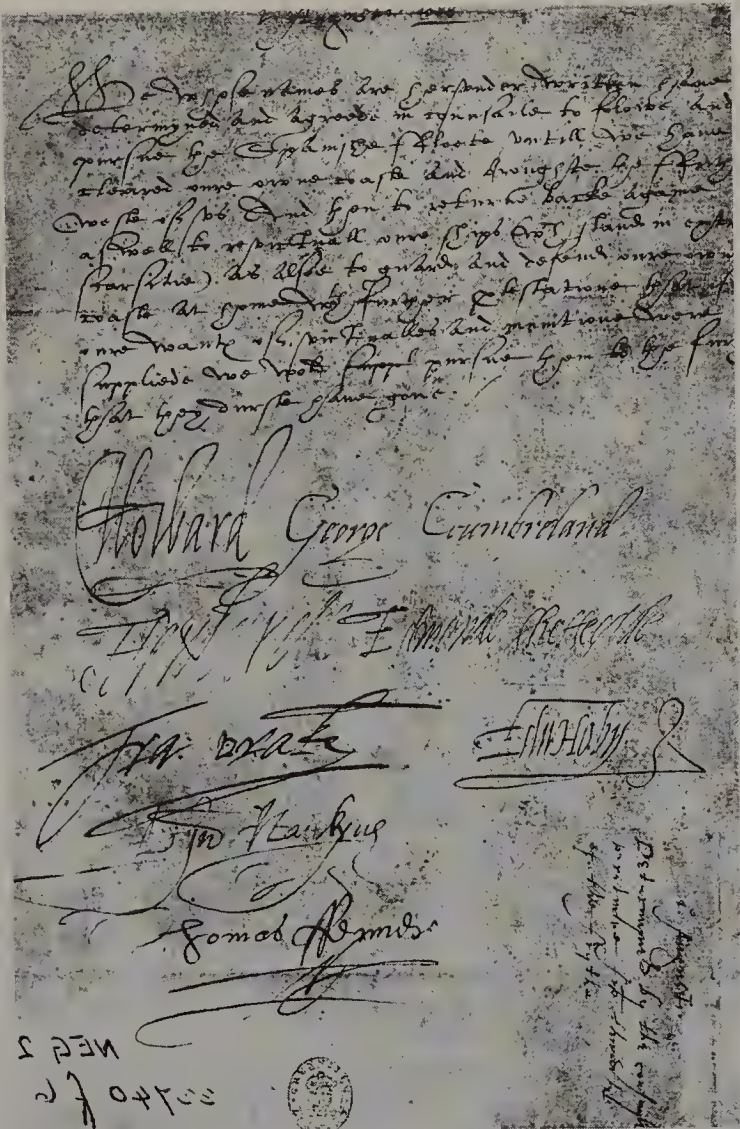 We whose names are hereunder written have
determyned and agreede in counsaile to folowe and
pursue the Spanishe ffleete untill we have
cleared oure owne coaste and broughte the ffrithe
weste of us And then to returne backe againe
aswell to revictuall oure ships (wch stand in extreme
scarsitie) as alsoe to guard and defend oure owne
coaste at home wth further protestatione that if
oure wants of victualles and munitione were
suppliede we wold pursue them to the furthest
that they durste have gone
C Howard George Cumbreland
Edmonde Sheffeylde
Fra: Drake Edw Hoby
John Hawkyns
Thomas ffenner
1 August
Determined by the
of the
NEG 2
740 f 6